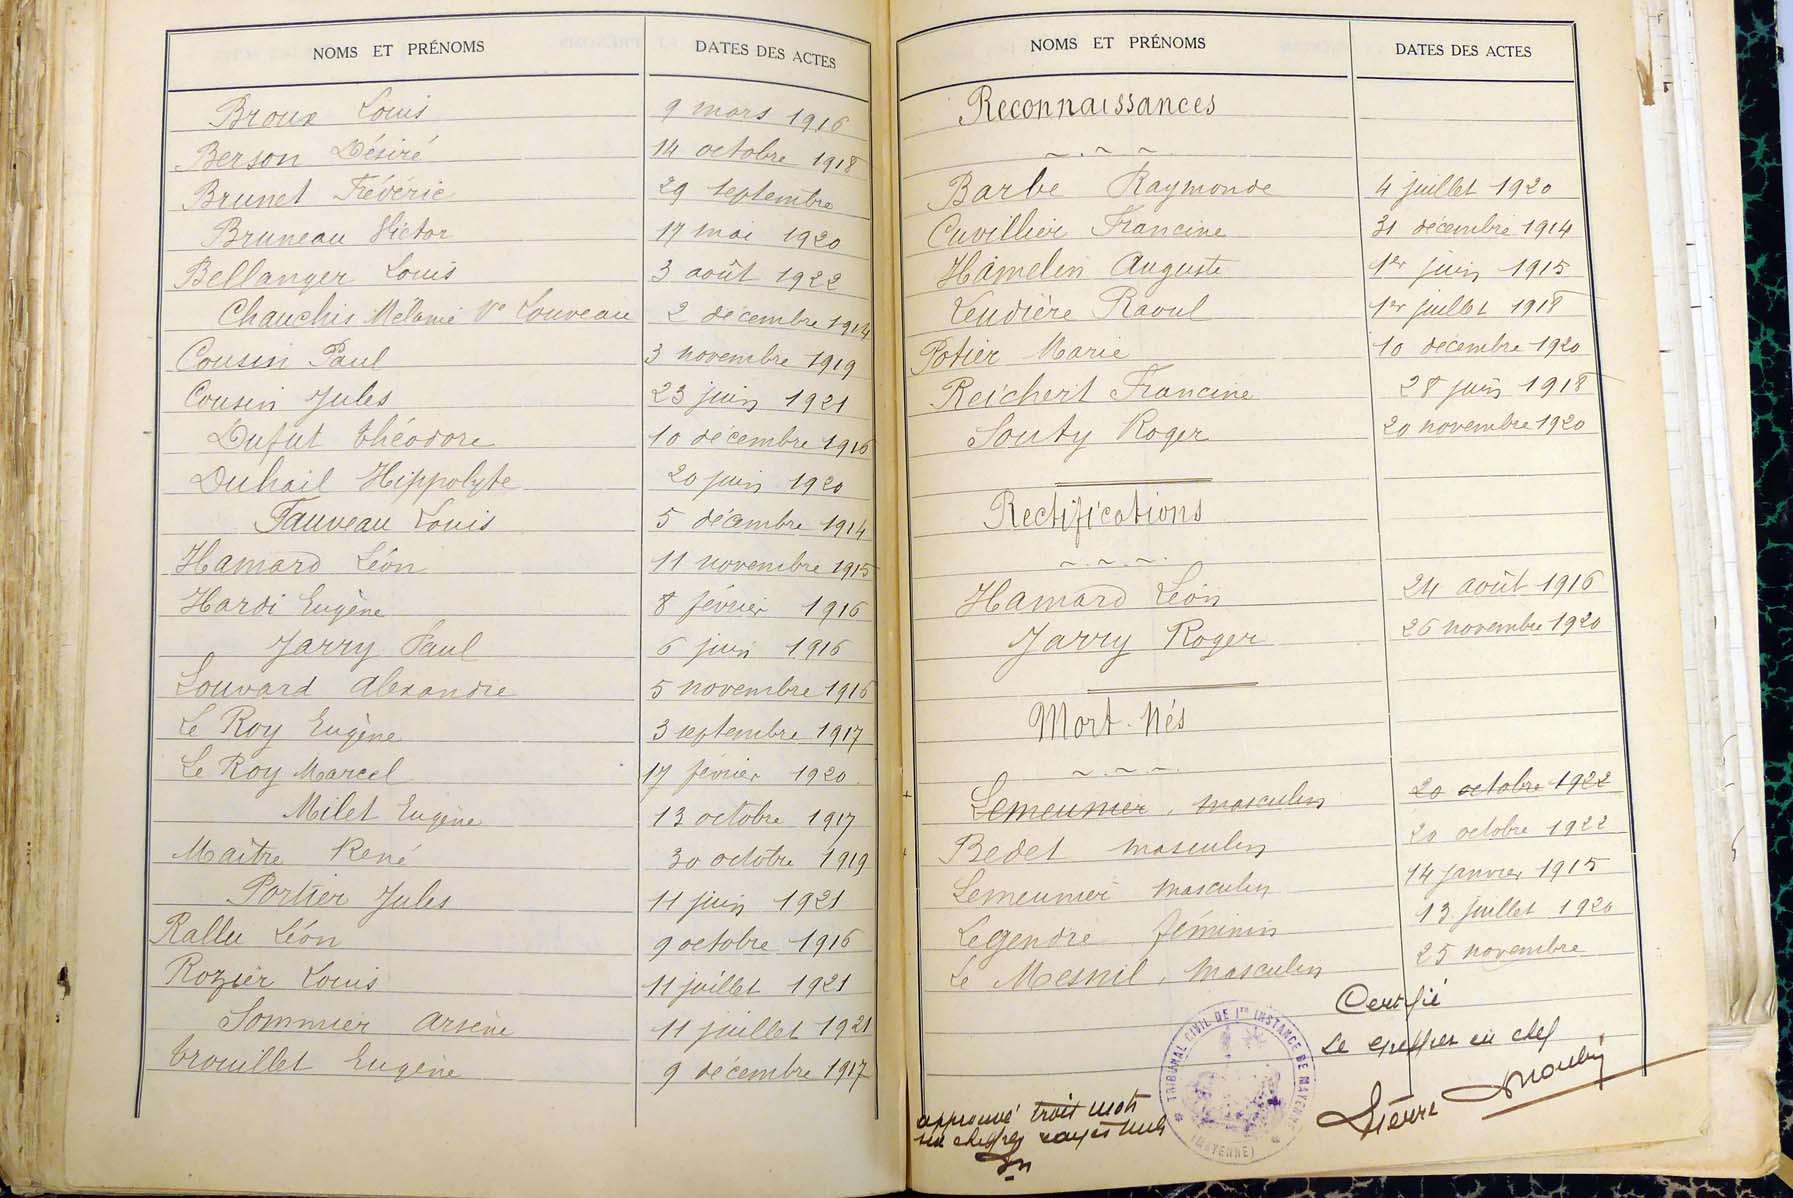 NOMS ET PRÉNOMS DATES DES ACTES
Broux Louis 9 mars 1916
Berson Désiré 14 octobre 1918
Brunet Frévéric 29 septembre
Bruneau Victor 17 mai 1920
Bellanger Louis 3 août 1922
Chauchis Mélanie Ve Louveau 2 décembre 1914
Cousin Paul 3 novembre 1919
Cousin Jules 23 juin 1921
Dufut Théodore 10 décembre 1916
Duhail Hippolyte 20 juin 1920
Fauveau Louis 5 décembre 1914
Hamard Léon 11 novembre 1915
Hardi Eugène 8 février 1916
Jarry Paul 6 juin 1916
Louvard Alexandre 5 novembre 1916
Le Roy Eugène 3 septembre 1917
Le Roy Marcel 17 février 1920
Milet Eugène 13 octobre 1917
Maître René 30 octobre 1919
Portier Jules 11 juin 1921
Rallu Léon 9 octobre 1916
Rozier Louis 11 juillet 1921
Sommier Arsène 11 juillet 1921
Trouillet Eugène 9 décembre 1917
NOMS ET PRÉNOMS DATES DES ACTES
Reconnaissances
Barbe Raymonde 4 juillet 1920
Cuvillier Francine 31 décembre 1914
Hamelin Auguste 1er juin 1915
Raoul 1er juillet 1918
Potier Marie 10 décembre 1920
Reichert Francine 28 juin 1918
Souty Roger 20 novembre 1920
Rectifications
Hamard Léon 24 août 1916
Jarry Roger 26 novembre 1920
Mort-Nés
Lemeunier, masculin 20 octobre 1922
Bedet masculin 20 octobre 1922
Lemeunier masculin 14 janvier 1915
Legendre féminin 13 juillet 1920
Le Mesnil, masculin 25 novembre
Certifié
Le greffier en chef
TRIBUNAL CIVIL DE 1re INSTANCE DE MAYENNE
(MAYENNE)
approuvé trois mots
six chiffres rayés nuls